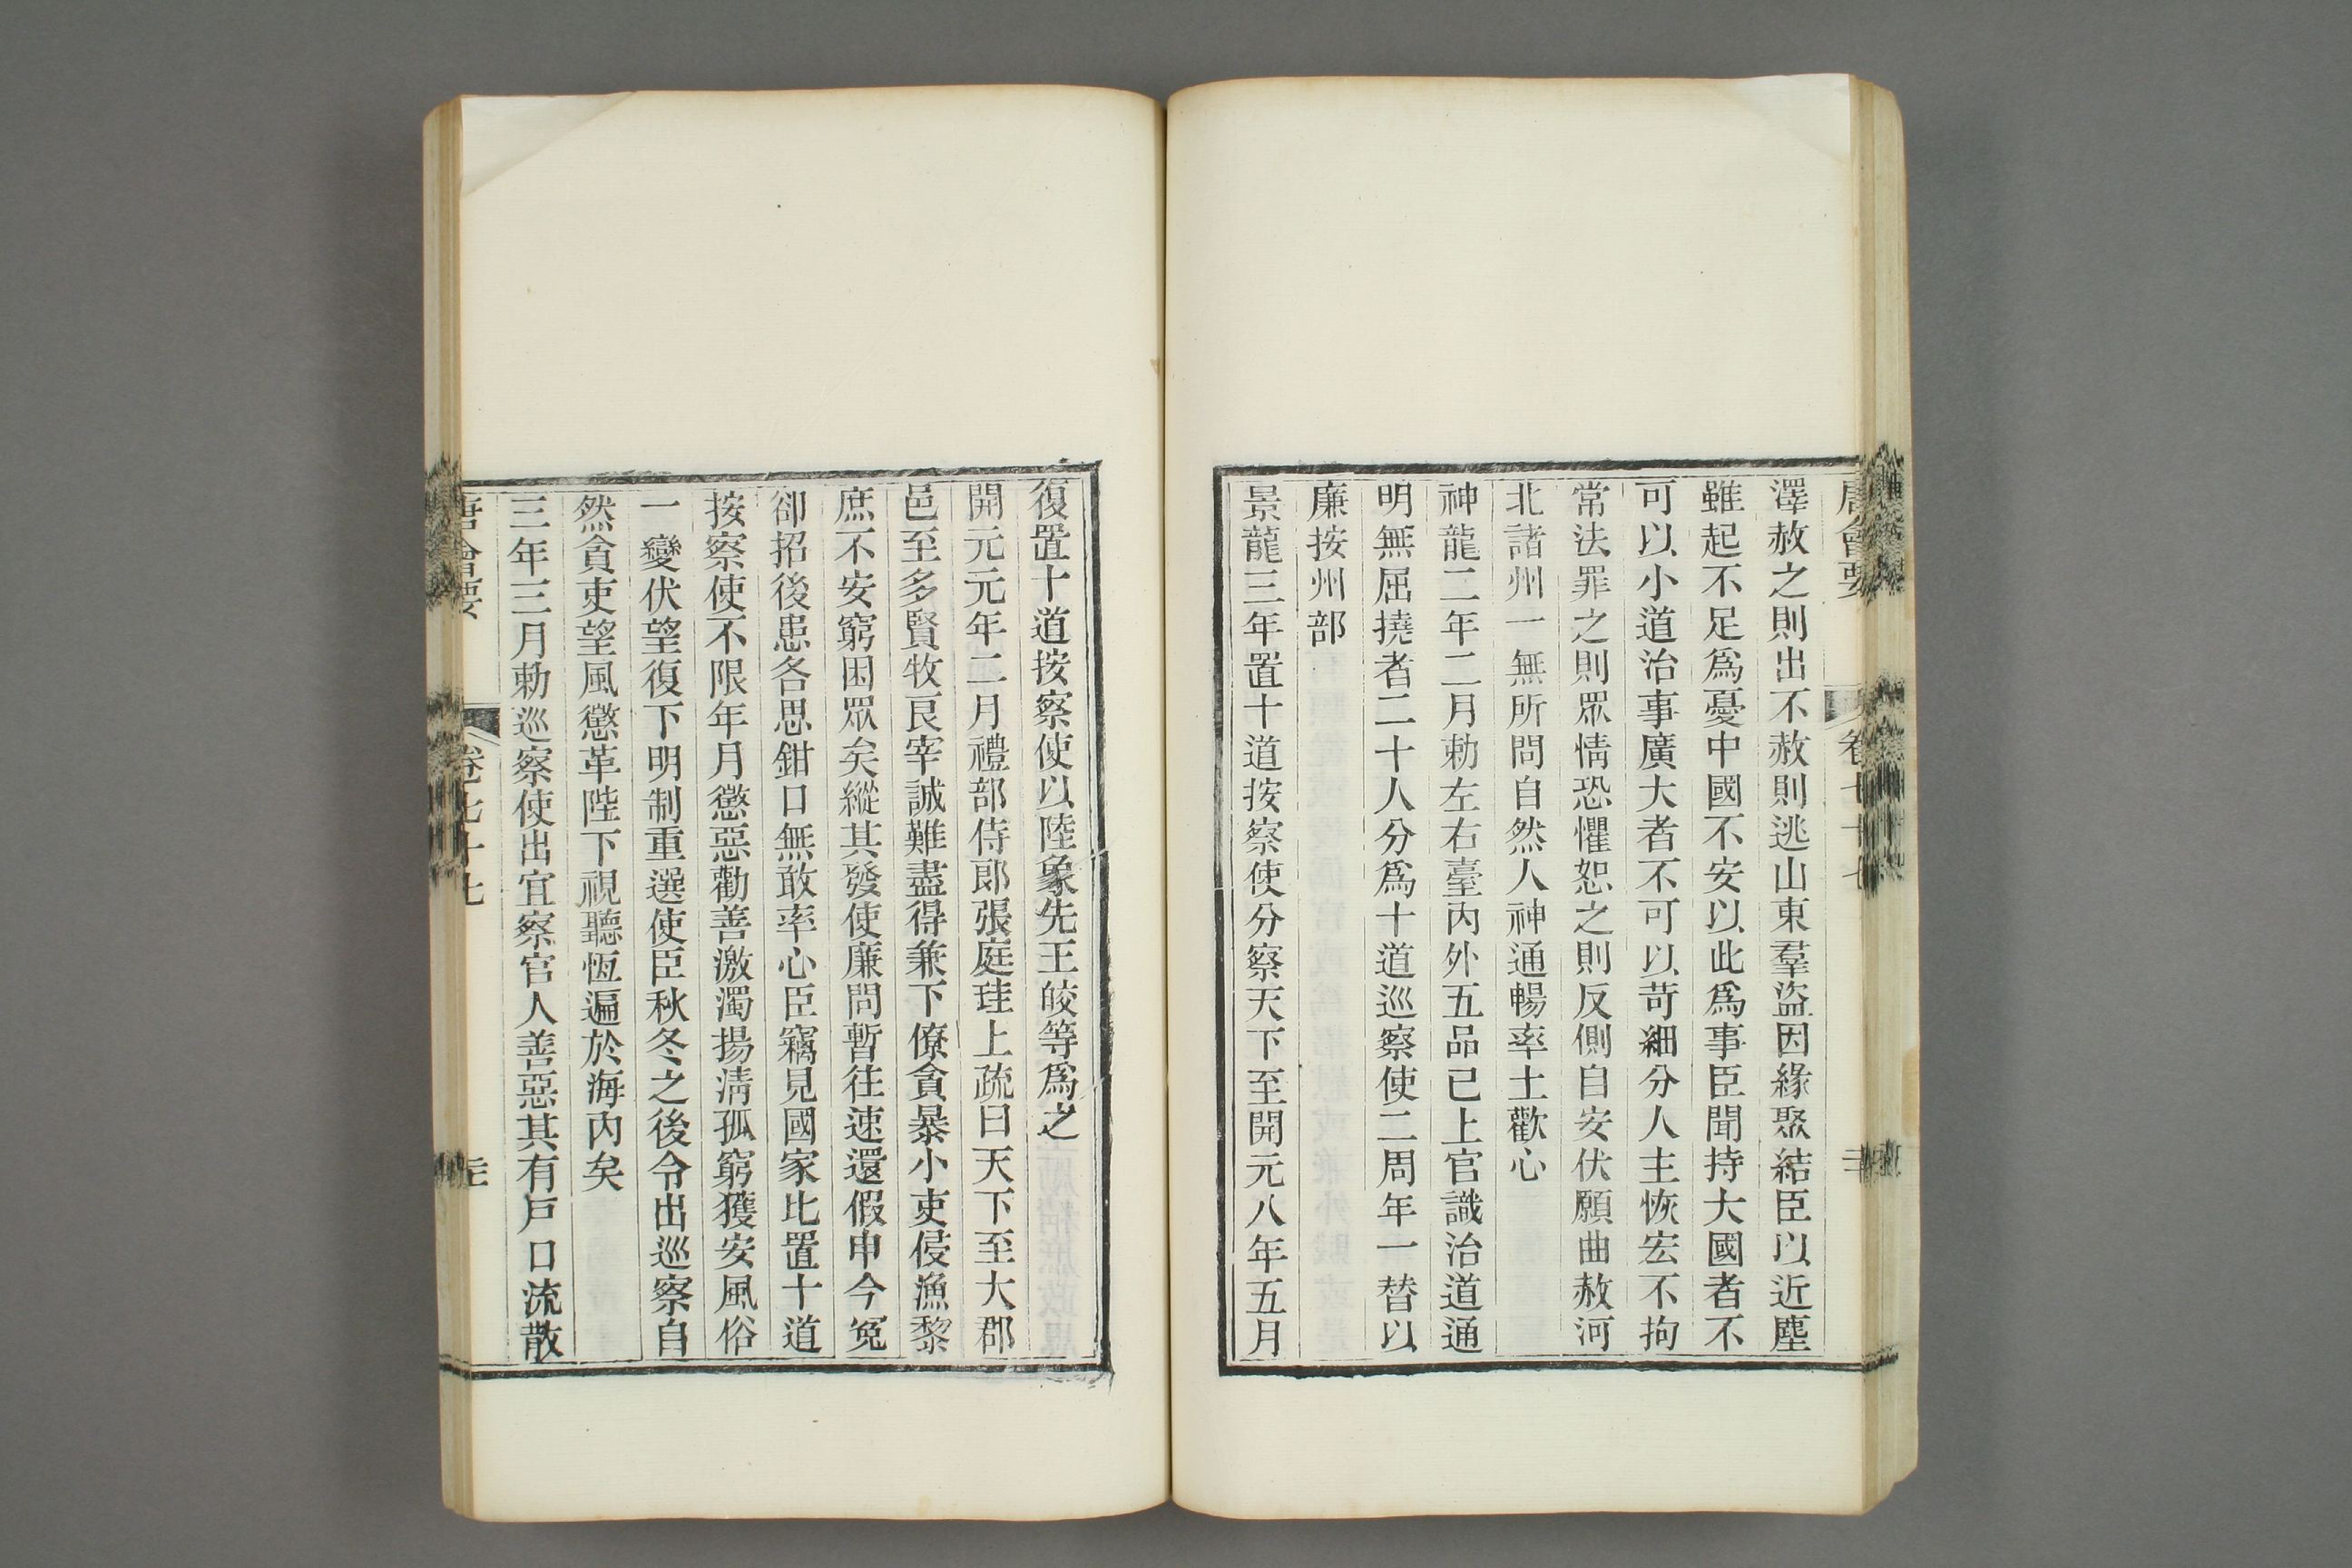 唐會要 卷七十七
澤赦之則出不赦則逃山東羣盜因緣聚結臣以近塵
雖起不足爲憂中國不安以此爲事臣聞持大國者不
可以小道治事廣大者不可以苛細分人主恢宏不拘
常法罪之則眾情恐懼恕之則反側自安伏願曲赦河
北諸州一無所問自然人神通暢率土歡心
神龍二年二月勅左右臺內外五品已上官識治道通
明無屈撓者二十人分爲十道巡察使二周年一替以
廉按州部
景龍三年置十道按察使分察天下至開元八年五月
復置十道按察使以陸象先王皎等爲之
開元元年二月禮部侍郎張庭珪上疏曰天下至大郡
邑至多賢牧良宰誠難盡得兼下僚貪暴小吏侵漁黎
庶不安窮困眾矣縱其發使廉問暫往速還假申今冤
卻招後患各思鉗口無敢率心臣竊見國家比置十道
按察使不限年月懲惡勸善激濁揚淸孤窮獲安風俗
一變伏望復下明制重選使臣秋冬之後令出巡察自
然貪吏望風懲革陛下視聽恆遍於海內矣
三年三月勅巡察使出宜察官人善惡其有戶口流散
唐會要 卷七十七